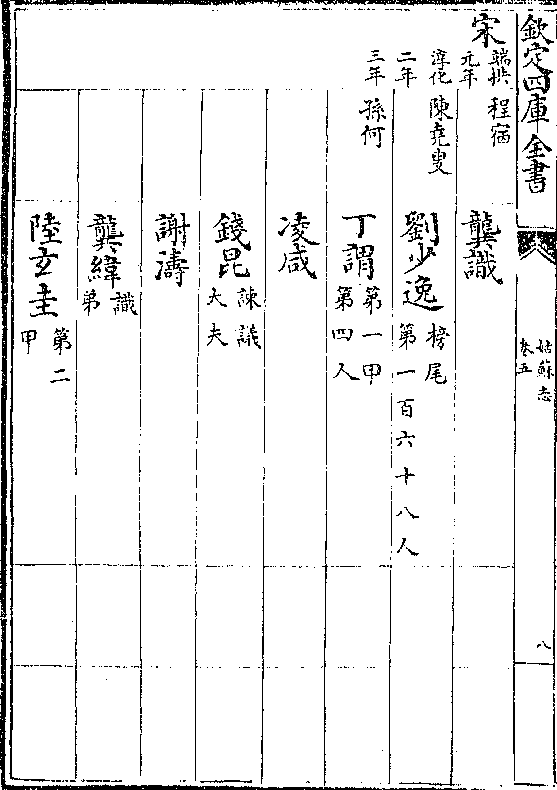 欽定四庫全書
姑蘇志
卷五
八
宋
端拱元年 程宿
龔識
淳化二年 陳堯叟
劉少逸 榜尾第一百六十八人
三年 孫何
丁謂 第一甲第四人
凌咸
錢昆 諫議大夫
謝濤
龔緯 識弟
陸玄圭 第二甲